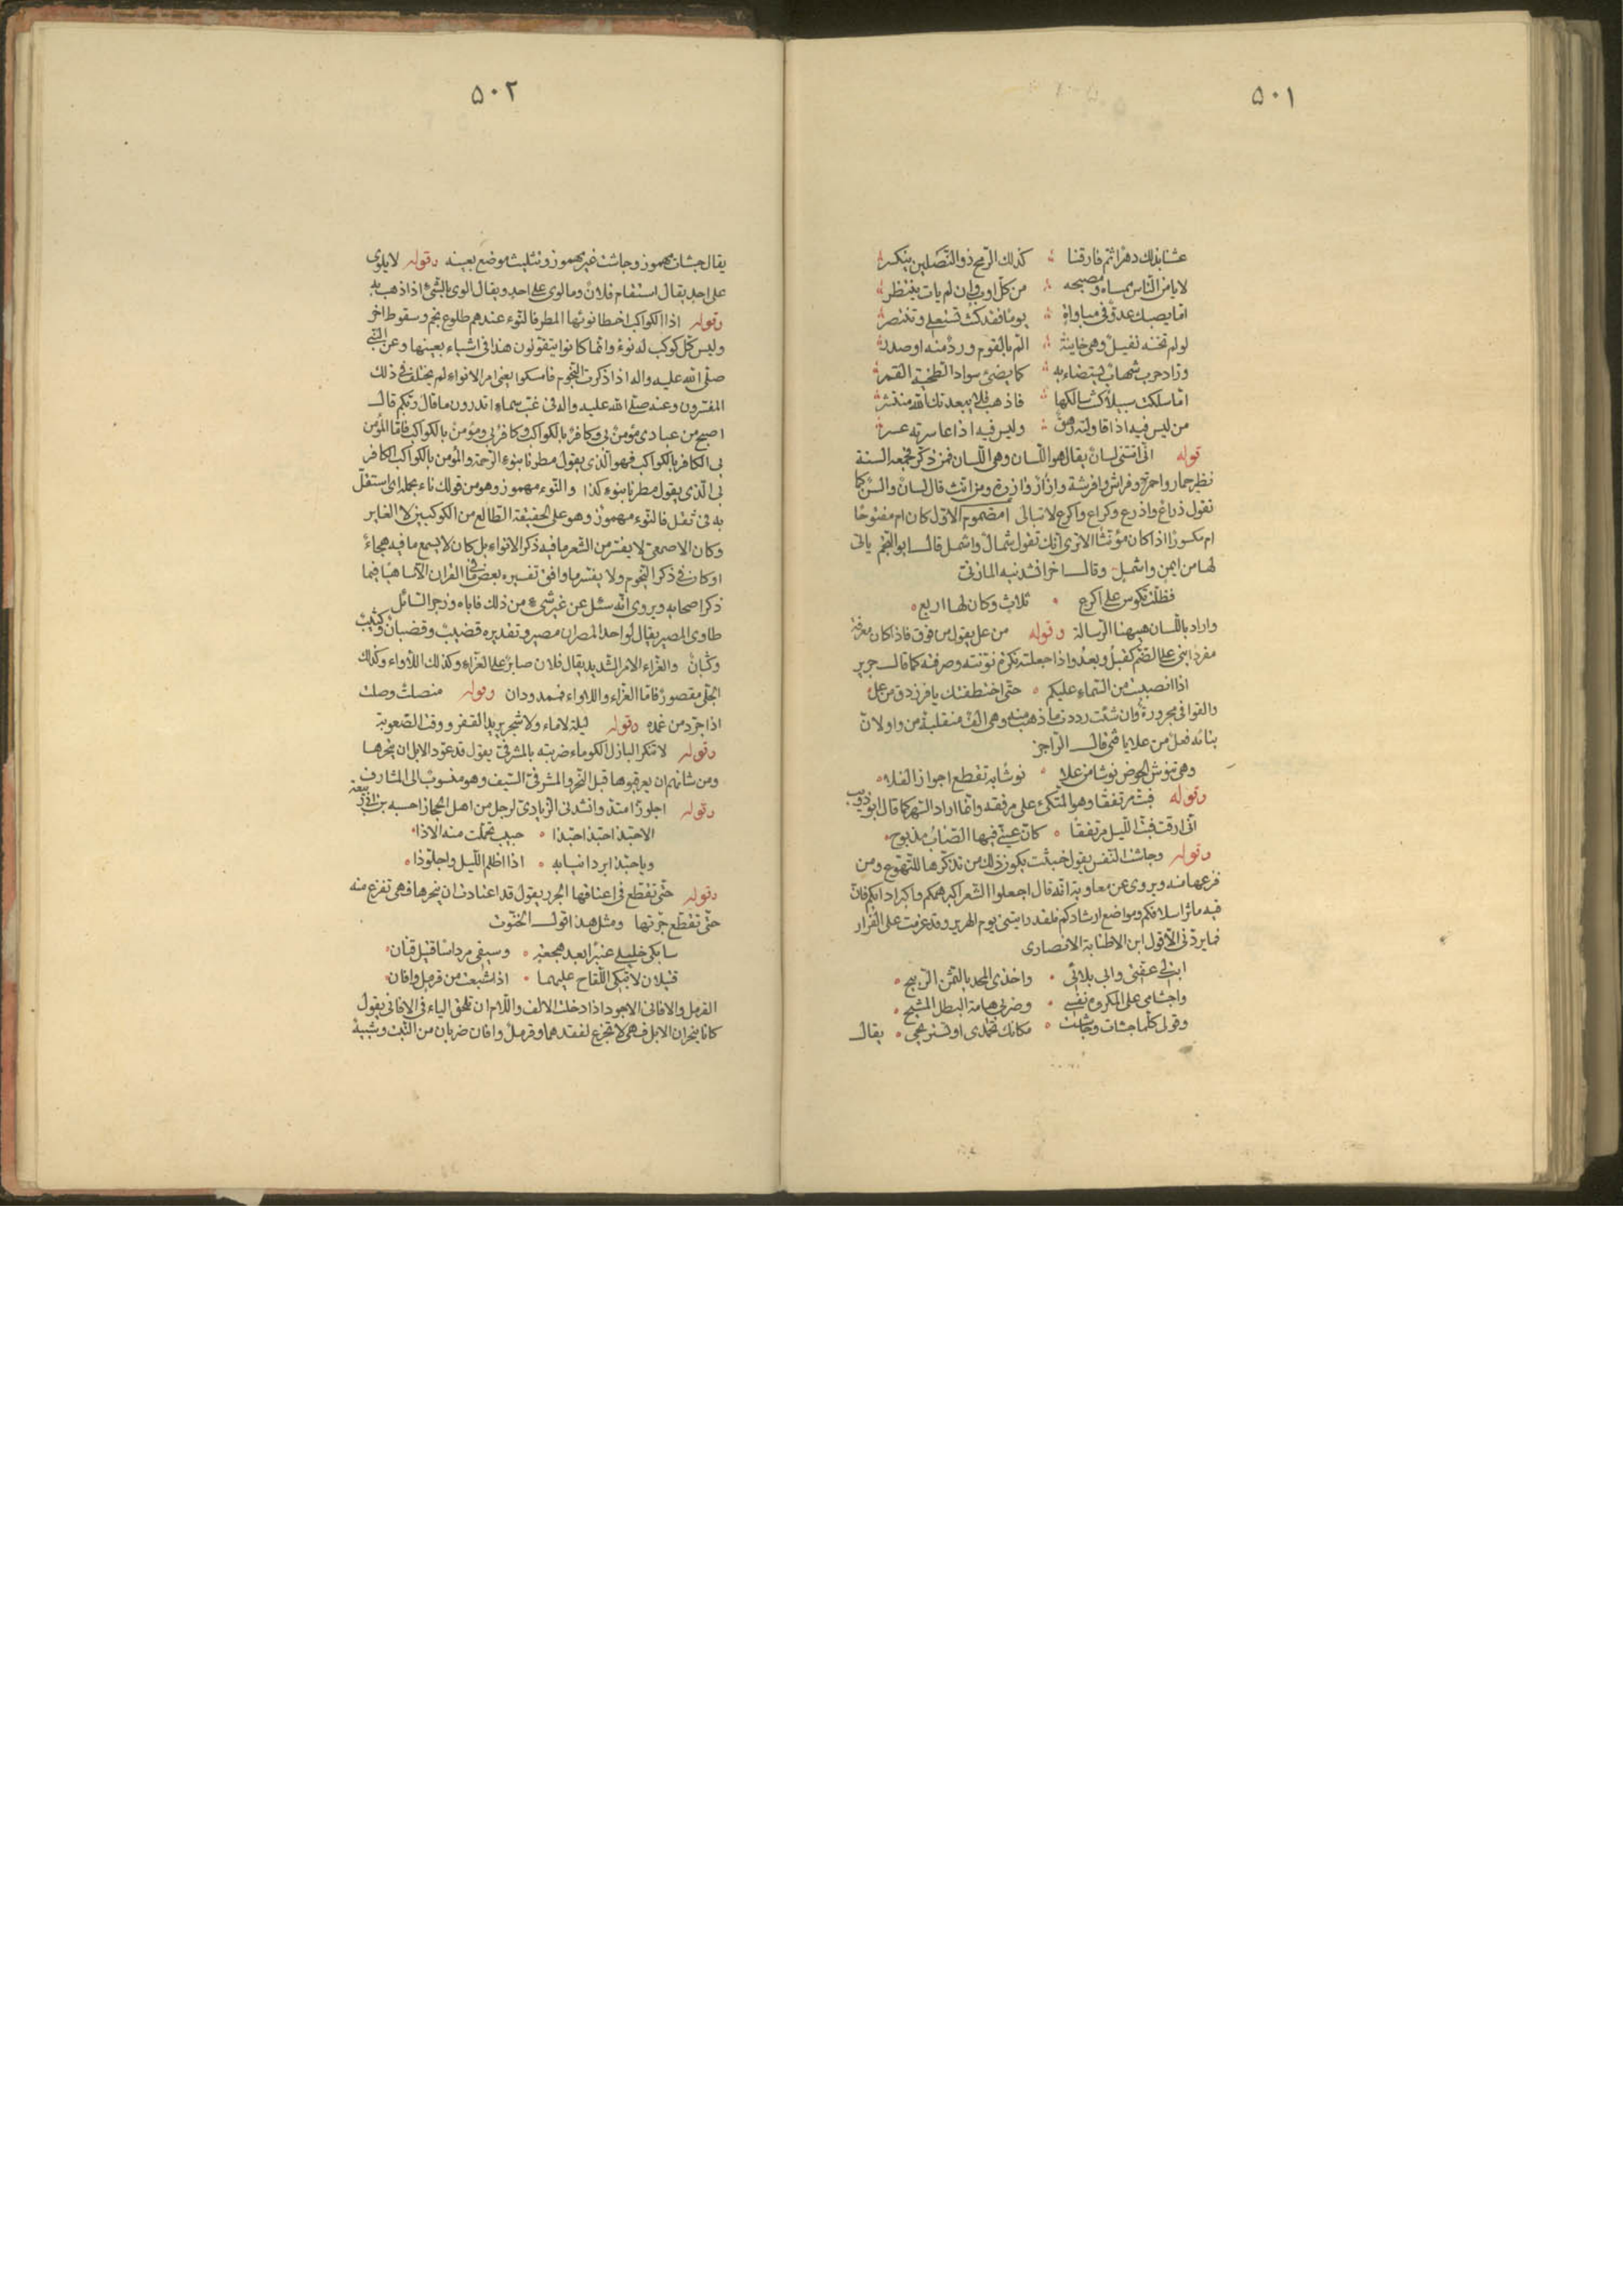 ٥٠١
عشنا بذلك دهرا ثم فارقنا كذلك الرمح ذو النصلين ينكسر
لا يامن الناس ممساه ومصبحه من كل اوب وان لم يات ينتظر
اما يصبك عدو فى مباواة يوما فقد كنت تستعلى وتنتصر
لو لم تخنه نفيل وهى خاينة الم بالقوم ورد منه او صدر
وراد حرب شهاب يستضاء به كما يضئ سواد الطخية القمر
اما سلكت سبيلا كنت سالكها فاذهب فلا يبعدنك الله منتشر
من ليس فيه اذا قاولته رهق وليس فيه اذا عاسرته عسر
قوله انى اتتنى لسان يقال هو اللسان وهى اللسان فمن ذكر فجمعه السنة
نظير حمار واحمرة وفراش وافرشة وازار وازرة ومن انث قال لسان والسن كما
تقول ذراع واذرع وكراع واكرع لا تبالى امضموم الاول كان ام مفتوحا
ام مكسورا اذا كان مؤنثا الا ترى انك تقول شمال واشمل قال ابو النجم ياتى
لها من ايمن واشمل وقال اخر انشدنيه المازنى
فظلت تكوس على اكرع ثلاث وكان لها اربع
واراد باللسان ههنا الرسالة وقوله من عل يقول من فوق فاذا كان معرفة
مفردا بنى على الضم كقبل وبعد واذا جعلته نكرة نونته وصرفته كما قال جرير
اذا انصببت من السماء عليكم حتى اختطفتك يا فرزدق من عل
والقوافى مجرورة وان شئت رددت ما ذهب منه وهى الف منقلبة من واو لان
بنائه فعل من علا يا فتى قال الراجز
وهى تنوش الحوض نوشا من علا نوشا به تقطع اجواز الفلا
وقوله فبت مرتفقا وهو المتكئ على مرفقه وانما اراد السهر كما قال ابو ذويب
انى ارقت فبت الليل مرتفقا كان عينى فيها الصاب مذبوح
وقوله وجاشت النفس يقول خبثت يكون ذلك من تذكرها للتهوع ومن
فزعها منه ويروى عن معاوية انه قال اجعلوا الشعر اكبر همكم واكبر ادابكم فان
فيه ماثر اسلافكم ومواضع ارشادكم فلقد رايتنى يوم الهرير وقد عزمت على الفرار
فما يردنى الا قول ابن الاطنابة الانصارى
ابت لى عفتى وابى بلائى واخذى الحمد بالثمن الربيح
واجشامى على المكروه نفسى وضربى هامة البطل المشيح
وقولى كلما جشات وجاشت مكانك تحمدى او تستريحى يقال
٥٠٢
يقال جشات مهموز وجاشت غير مهموز وتثليث موضع بعينه وقوله لا يلوى
على احد يقال استقام فلان وما لوى على احد ويقال الوى بالشئ اذا ذهب به
وقوله اذا الكواكب اخطا نوئها المطر فالنوء عندهم طلوع نجم وسقوط اخر
وليس كل كوكب له نوء وانما كانوا يقولون هذا فى اشياء بعينها وعن النبى
صلى الله عليه واله اذا ذكرت النجوم فامسكوا يعنى امر الانواء لم يختلف فى ذلك
المفسرون وعنه صلى الله عليه واله فى غب سماء اتدرون ما قال ربكم قال
اصبح من عبادى مؤمن بى وكافر بالكواكب وكافر بى ومؤمن بالكواكب فاما المؤمن
بى الكافر بالكواكب فهو الذى يقول مطرنا بنوء الرحمة والمؤمن بالكواكب الكافر
بى الذى يقول مطرنا بنوء كذا والنوء مهموز وهو من قولك ناء بحمله اى استقل
به فى ثقل فالنوء مهموز وهو على الحقيقة الطالع من الكوكبين لا الغاير
وكان الاصمعى لا يفسر من الشعر ما فيه ذكر الانواء بل كان لا يسمع ما فيه هجاء
او كان فى ذكر النجوم ولا يفسر ما وافق تفسيره بعض ما فى القران الا ساهيا فيما
ذكر اصحابه ويروى انه سئل عن غير شئ من ذلك فاباه وزجر السائل
طاوى المصير يقال لواحد المصران مصير وتقديره قضيب وقضبان وكثيب
وكثبان والعزاء الامر الشديد يقال فلان صابر على العزاء وكذلك اللاواء وكذلك
الجلى مقصور فاما العزاء واللاواء فممدودان وقوله منصلت وصلت
اذا جرد من غمده وقوله ليلة لا ماء ولا شجر يريد القفر ووقت الصعوبة
وقوله لا تنكر البازل الكوماء ضربته بالمشرفى يقول قد عود الابل ان ينحرها
ومن شانهم ان يعرقبوها قبل النحر والمشرفى السيف وهو منسوب الى المشارف
وقوله اجلوذ امتد وانشدنى الزيادى لرجل من اهل الحجاز احسبه بن ابى ربيعة
الا حبذا حبذا حبذا حبيب تحملت منه الاذا
ويا حبذا برد انيابه اذا اظلم الليل واجلوذا
وقوله حتى تقطع فى اعناقها الجرر يقول قد اعتادت ان ينحرها فهى تفزع منه
حتى تقطع جرتها ومثل هذا قول الخنوت
سابكى خليلى عنبرا بعد هجعة وسيفى مرداسا قتيل قنان
قتيلان لا تبكى اللقاح عليهما اذا شبعت من قرمل وافان
القرمل والافانى الاجود اذا دخلت الالف واللام ان تلحق الياء فى الافانى يقول
كانا ينحران الابل فهى لا تجزع لفقدهما وقرمل وافان ضربان من النبت وشبيه